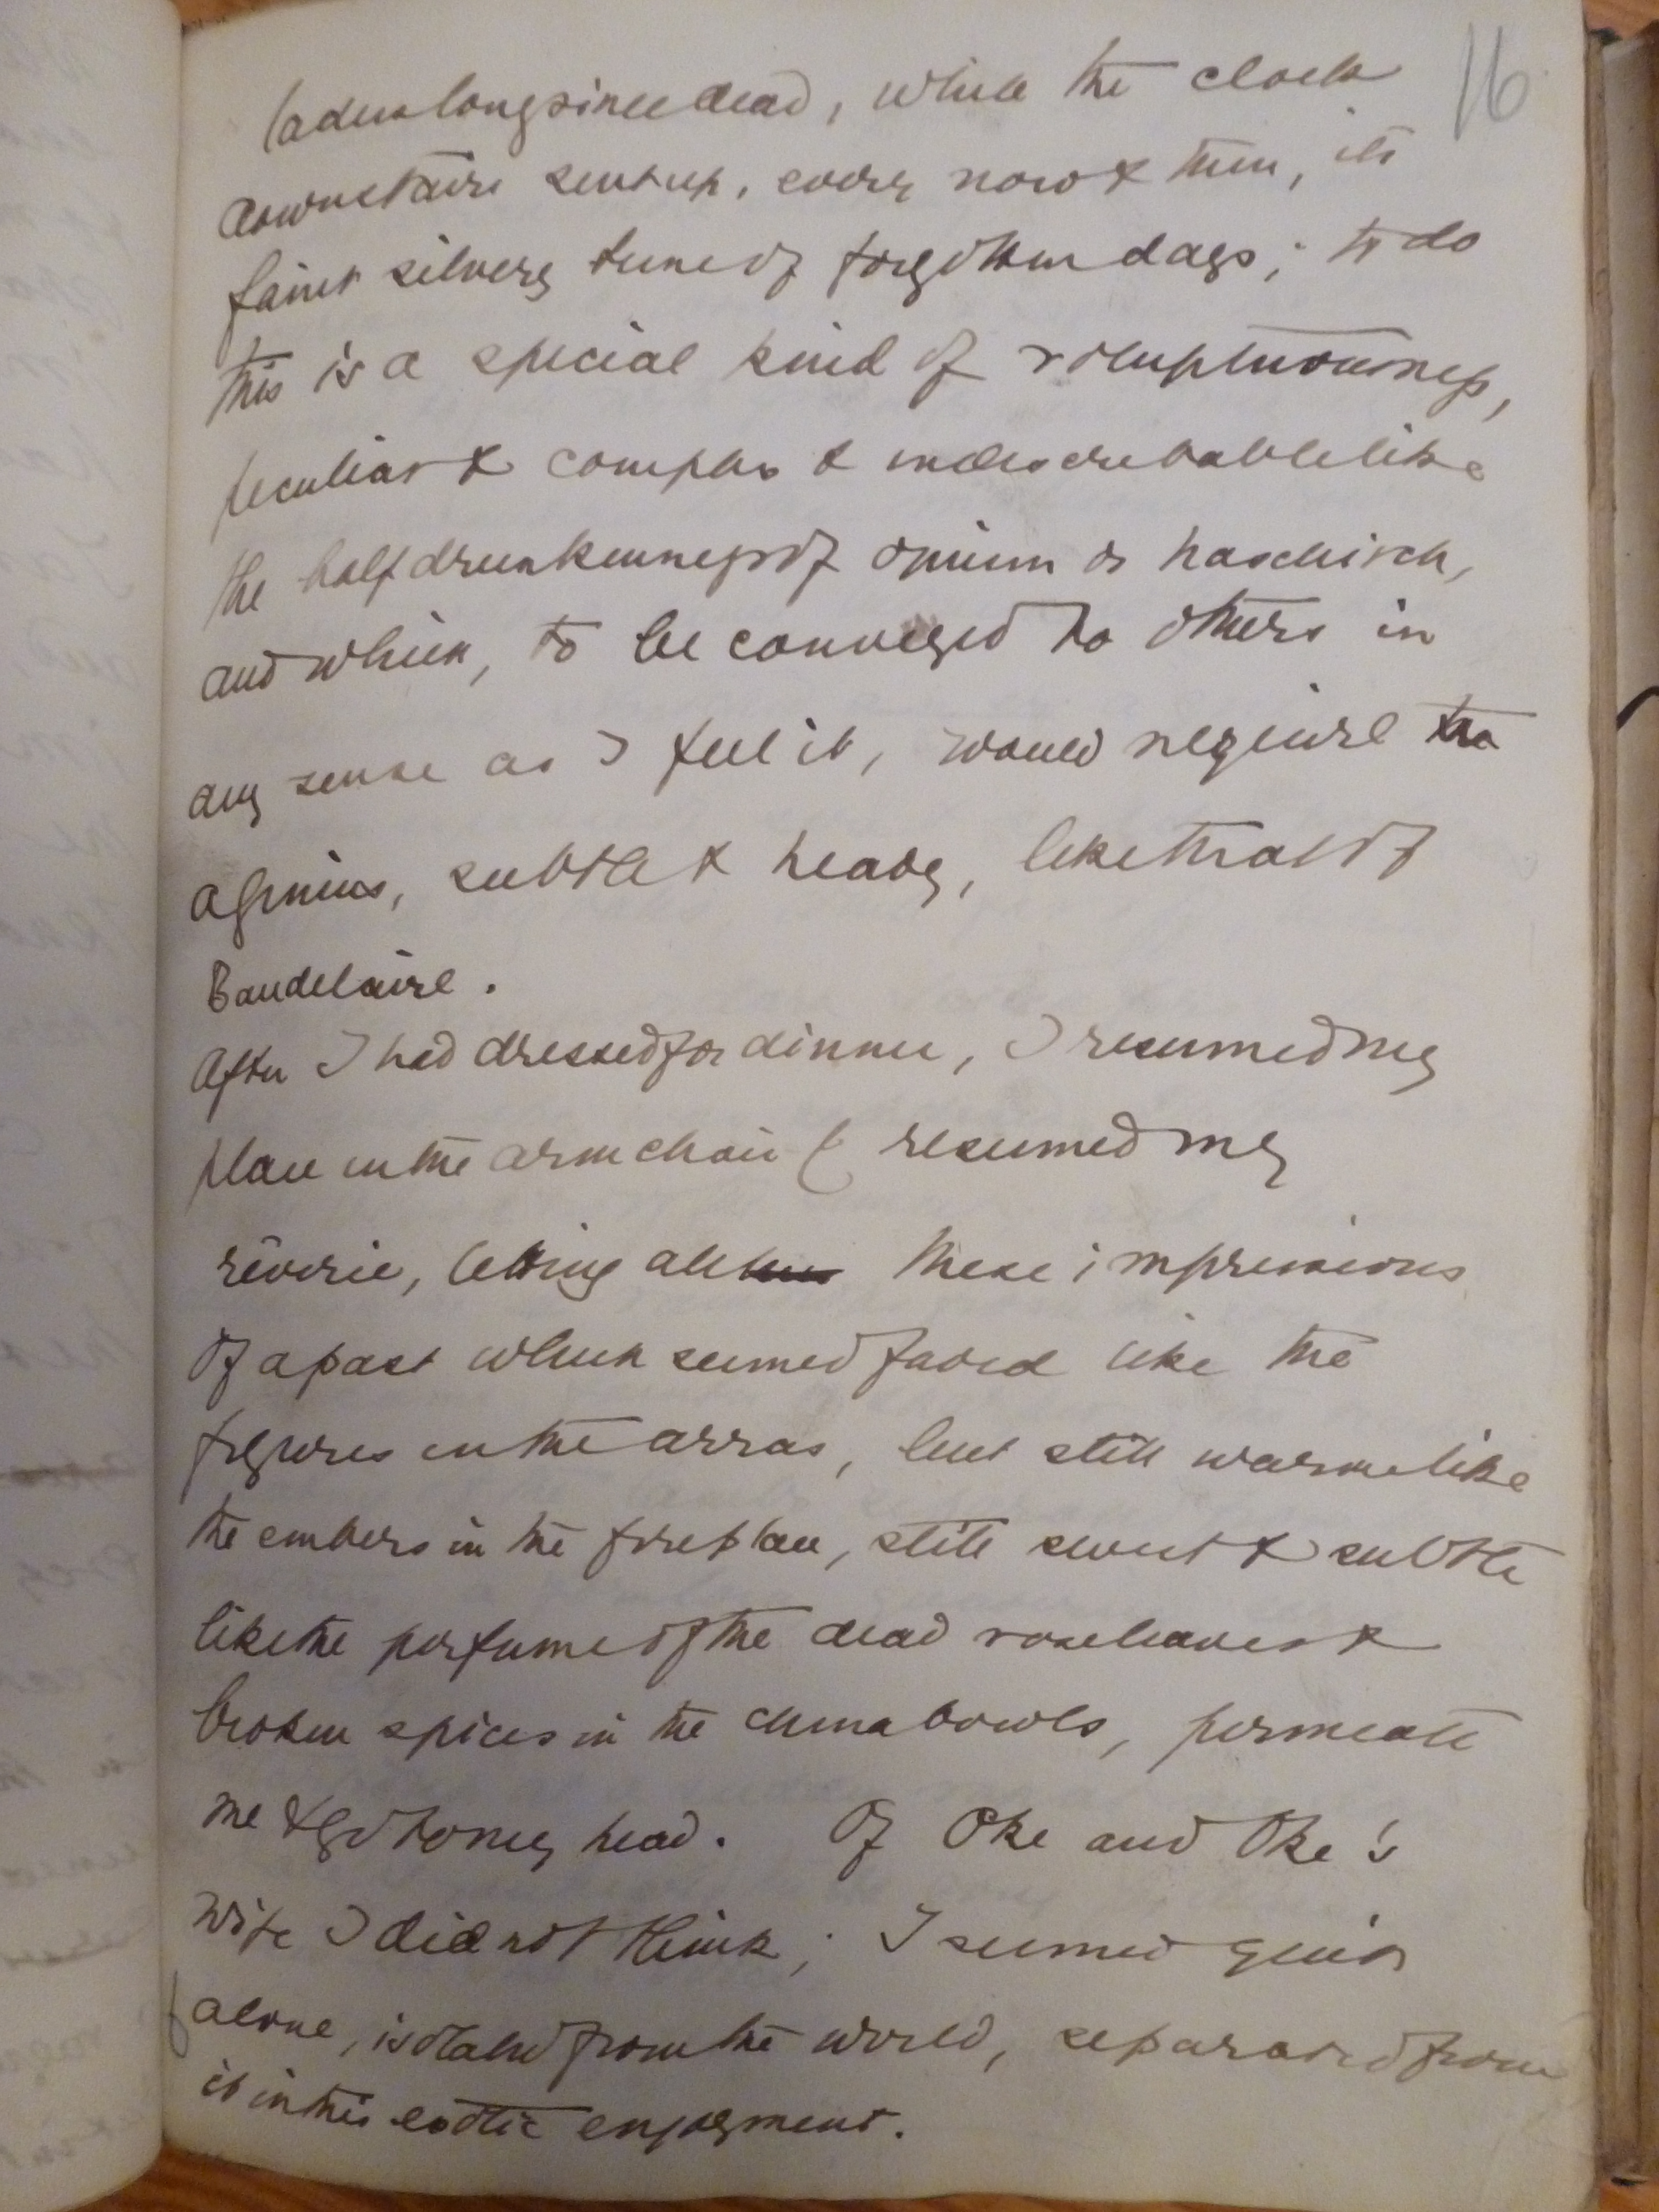 16
ladies long since dead, while the clock
downstairs sent up, every now & then, its
faint silvery tune of forgotten days; to do
this is a special kind of voluptuousness,
peculiar & complex & indescribable like
the half drunkenness of opium or haschisch,
and which, to be conveyed to others in
any sense as I feel it, would require
a genius, subtle & heady, like that of
Baudelaire.
After I had dressed for dinner, I resumed my
place in the armchair & resumed my
rêverie, letting all these impressions
of a past which seemed faded like the
figures in the arras, but still warm like
the embers in the fireplace, still sweet & subtle
like the perfume of the dead roseleaves &
broken spices in the china bowls, permeate
me & go to my head. Of Oke and Oke's
wife I did not think; I seemed quite
alone, isolated from the world, separated from
it in this exotic enjoyment.